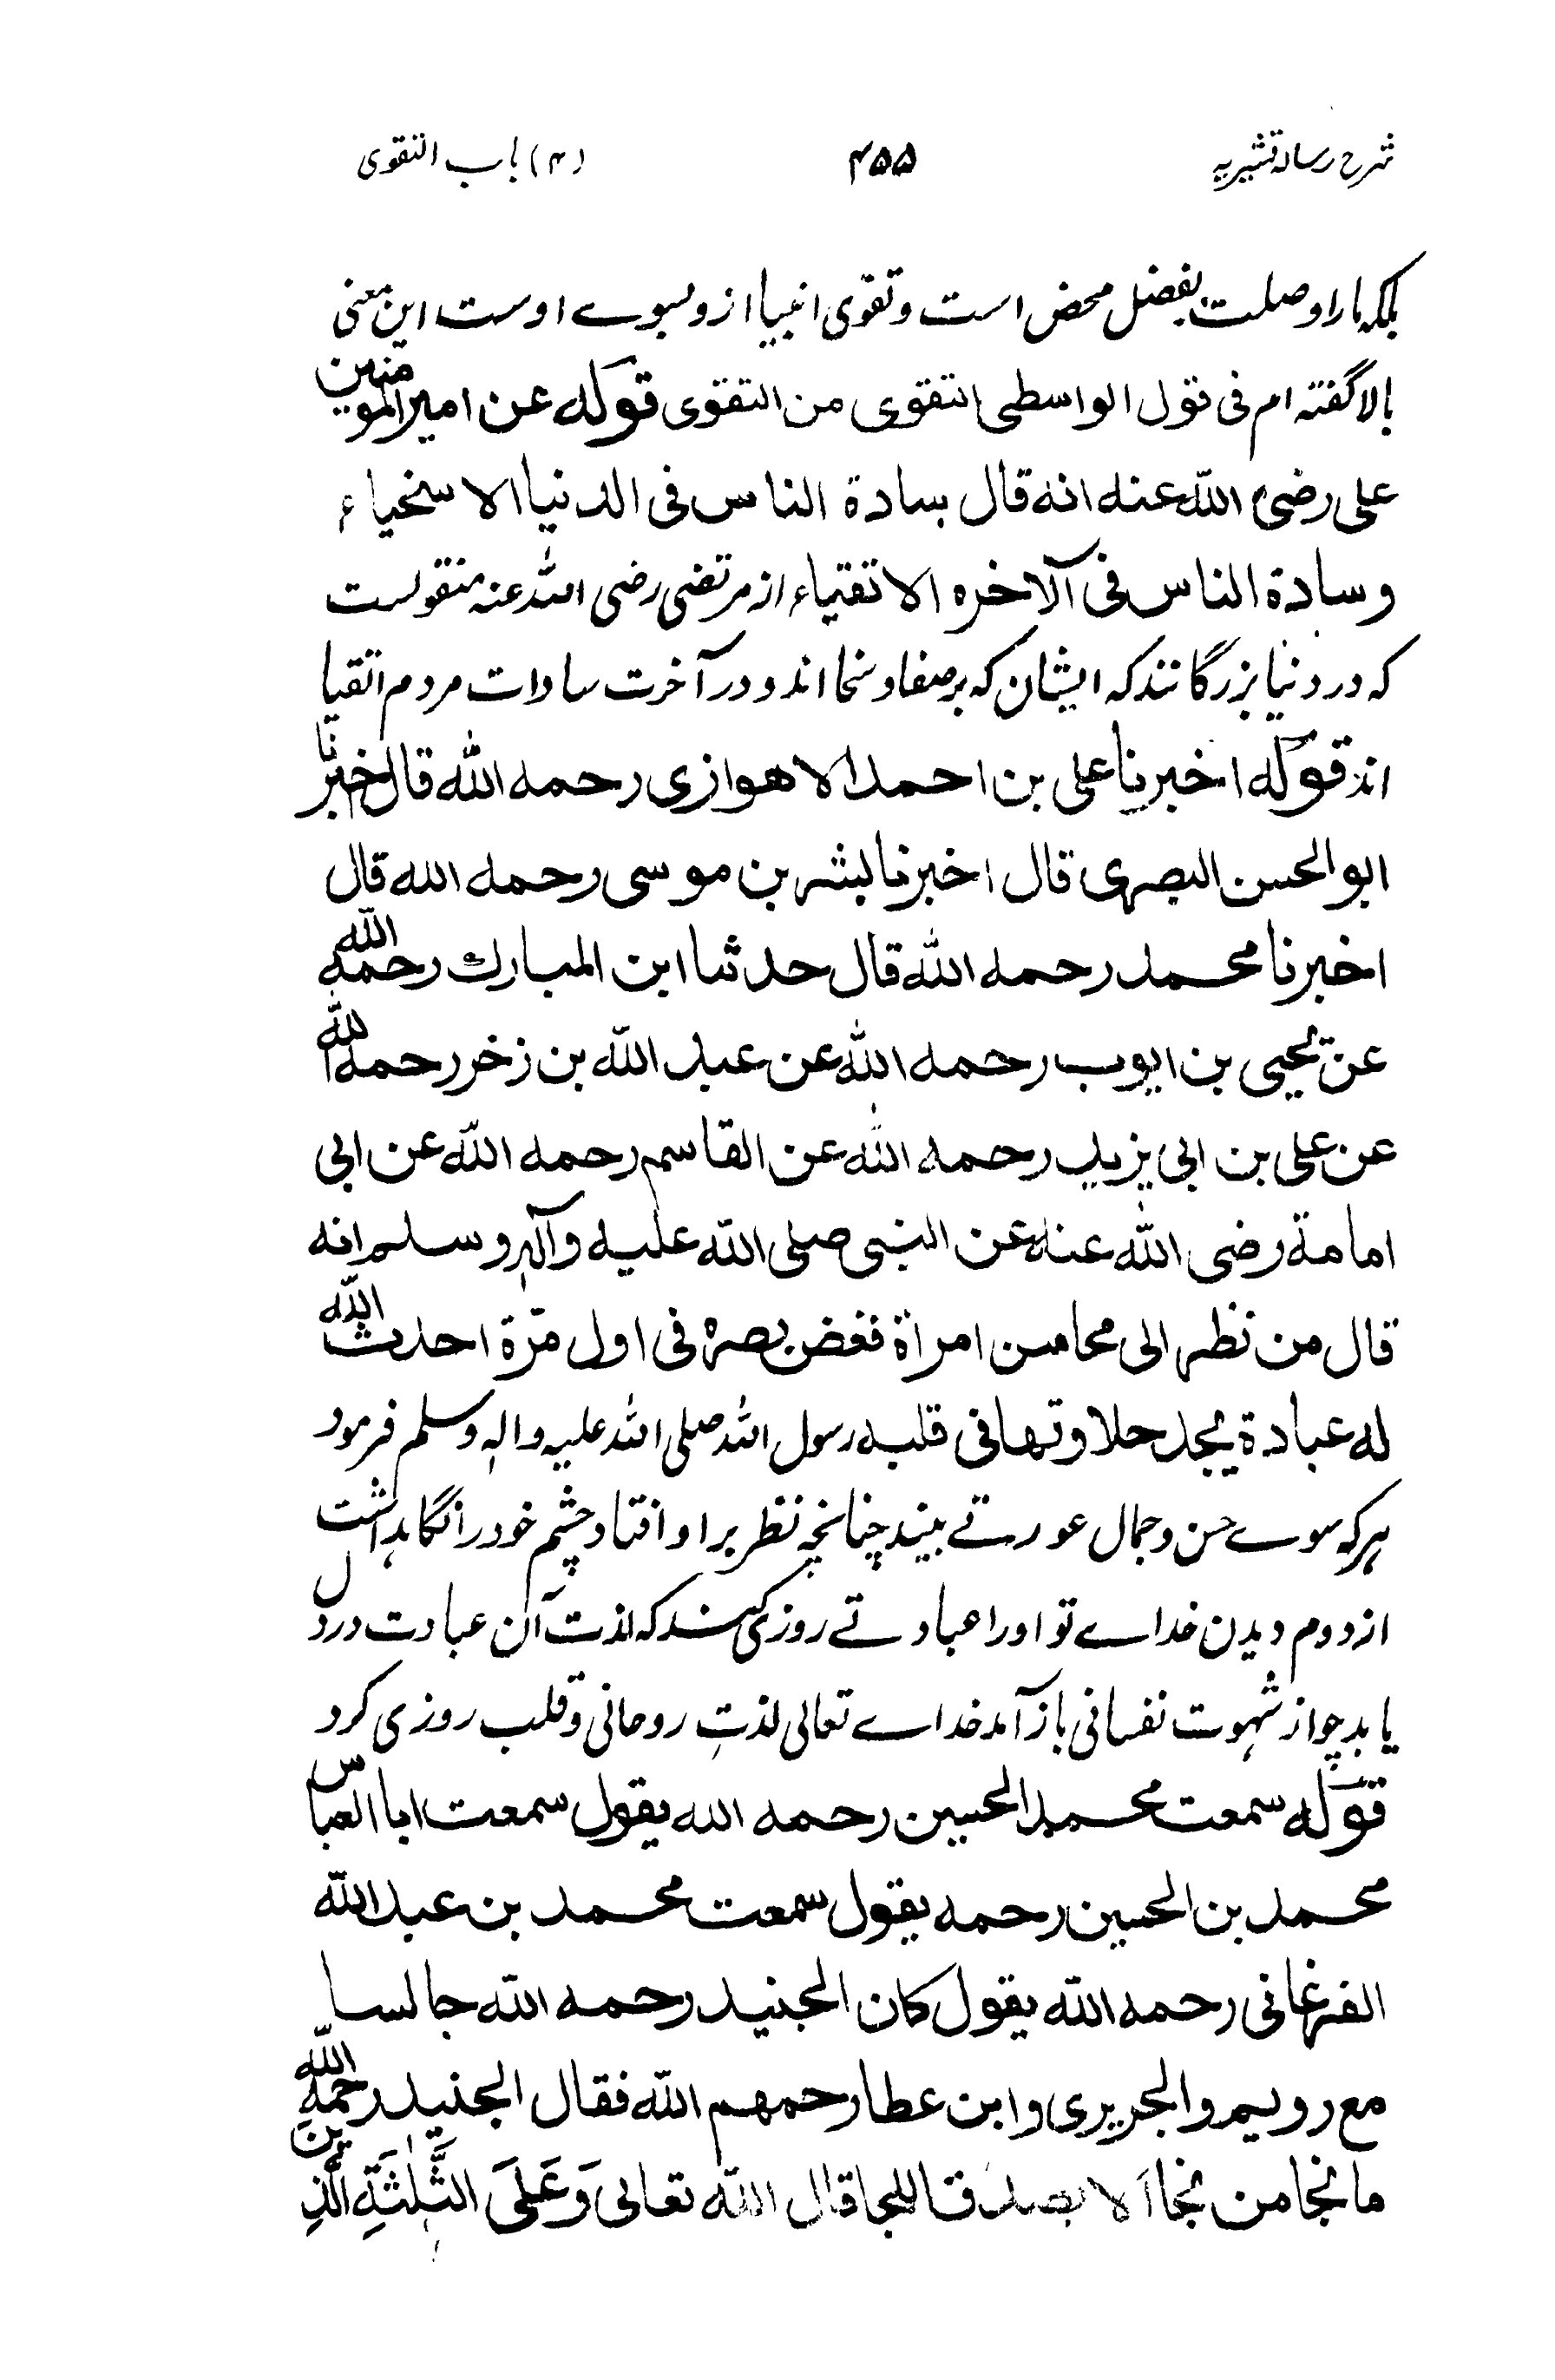 شرح رسالہ قشیریہ ۴۵۵ (۴) باب التقوی
بلکہ مارا وصلت بفضل محض است و تقوی انبیا ازو بسوے اوست این معنی
بالا گفتہ ام فی قول الواسطی التقوی من التقوی قولہ عن امیر المومنین
علی رضی اللہ عنہ انہ قال سادة الناس فی الدنیا الاسخیاء
وسادة الناس فی الآخرہ الاتقیاء از مرتضی رضی اللہ عنہ منقولست
کہ در دنیا بزرگانند کہ ایشان کہ بر صفا و سخا اند و در آخرت سادات مردم اتقیا
اند قولہ اخبرنا علی بن احمد الاهوازی رحمہ اللہ قال اخبرنا
ابو الحسن البصری قال اخبرنا بشر بن موسی رحمہ اللہ قال
اخبرنا محمد رحمہ اللہ قال حدثنا ابن المبارک رحمہ اللہ
عن یحیی بن ایوب رحمہ اللہ عن عبد اللہ بن زخر رحمہ اللہ
عن علی بن ابی یزید رحمہ اللہ عن القاسم رحمہ اللہ عن ابی
امامة رضی اللہ عنہ عن النبی صلی اللہ علیہ وآلہ وسلم انہ
قال من نظر الی محاسن امراة فغض بصرہ فی اول مرّة احدث اللہ
لہ عبادة یجد حلاوتها فی قلبہ رسول اللہ صلی اللہ علیہ والہ وسلم فرمود
ہر کہ سوے حسن و جمال عورتے بیند چنانچہ نظر بر او افتاد چشم خود را نگاہداشت
از دوم دیدن خداے تو اورا عبادتے روزی کند کہ لذت آن عبادت در دل
یابد چو از شہوت نفسانی باز آمد خداے تعالی لذت روحانی و قلب روزی کرد
قولہ سمعت محمد الحسین رحمہ اللہ یقول سمعت ابا العباس
محمد بن الحسین رحمہ یقول سمعت محمد بن عبد اللہ
الفرغانی رحمہ اللہ یقول کان الجنید رحمہ اللہ جالسا
مع رویم والجریری وابن عطا رحمهم اللہ فقال الجنید رحمہ اللہ
ما نجا من نجا الا بصدق اللجا قال اللہ تعالی وَعَلَی الثَّلٰثَةِ الَّذِینَ